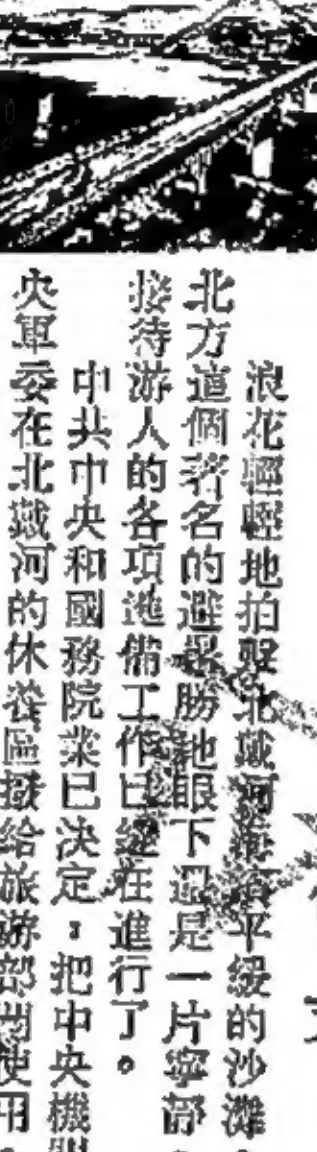 浪花輕輕地拍擊北戴河海濱平緩的沙灘。
北方這個著名的避暑勝地眼下還是一片寧靜。
接待游人的各項準備工作已經在進行了。
中共中央和國務院業已決定,把中央機
央軍委在北戴河的休養區撥給旅游部門使用。